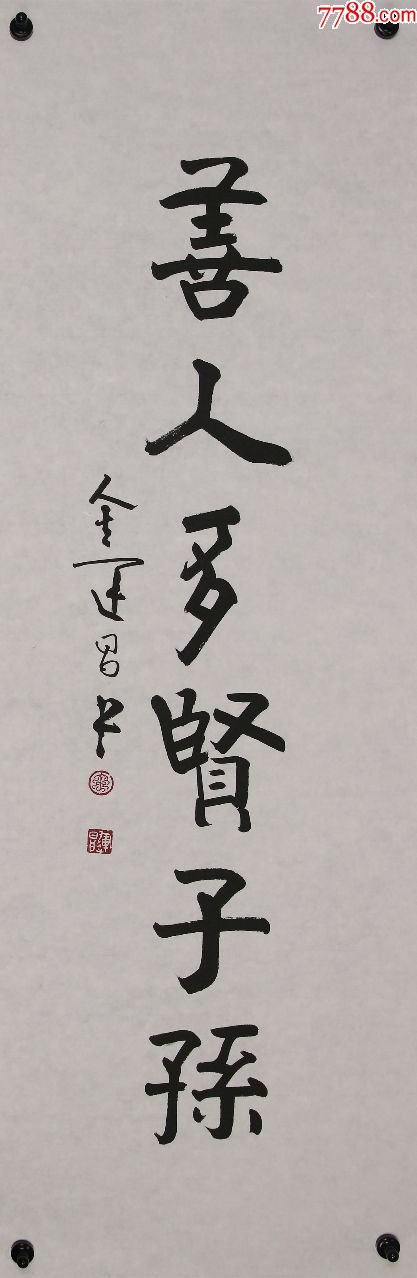 7788.com
善人多賢子孫
金運昌书
運昌